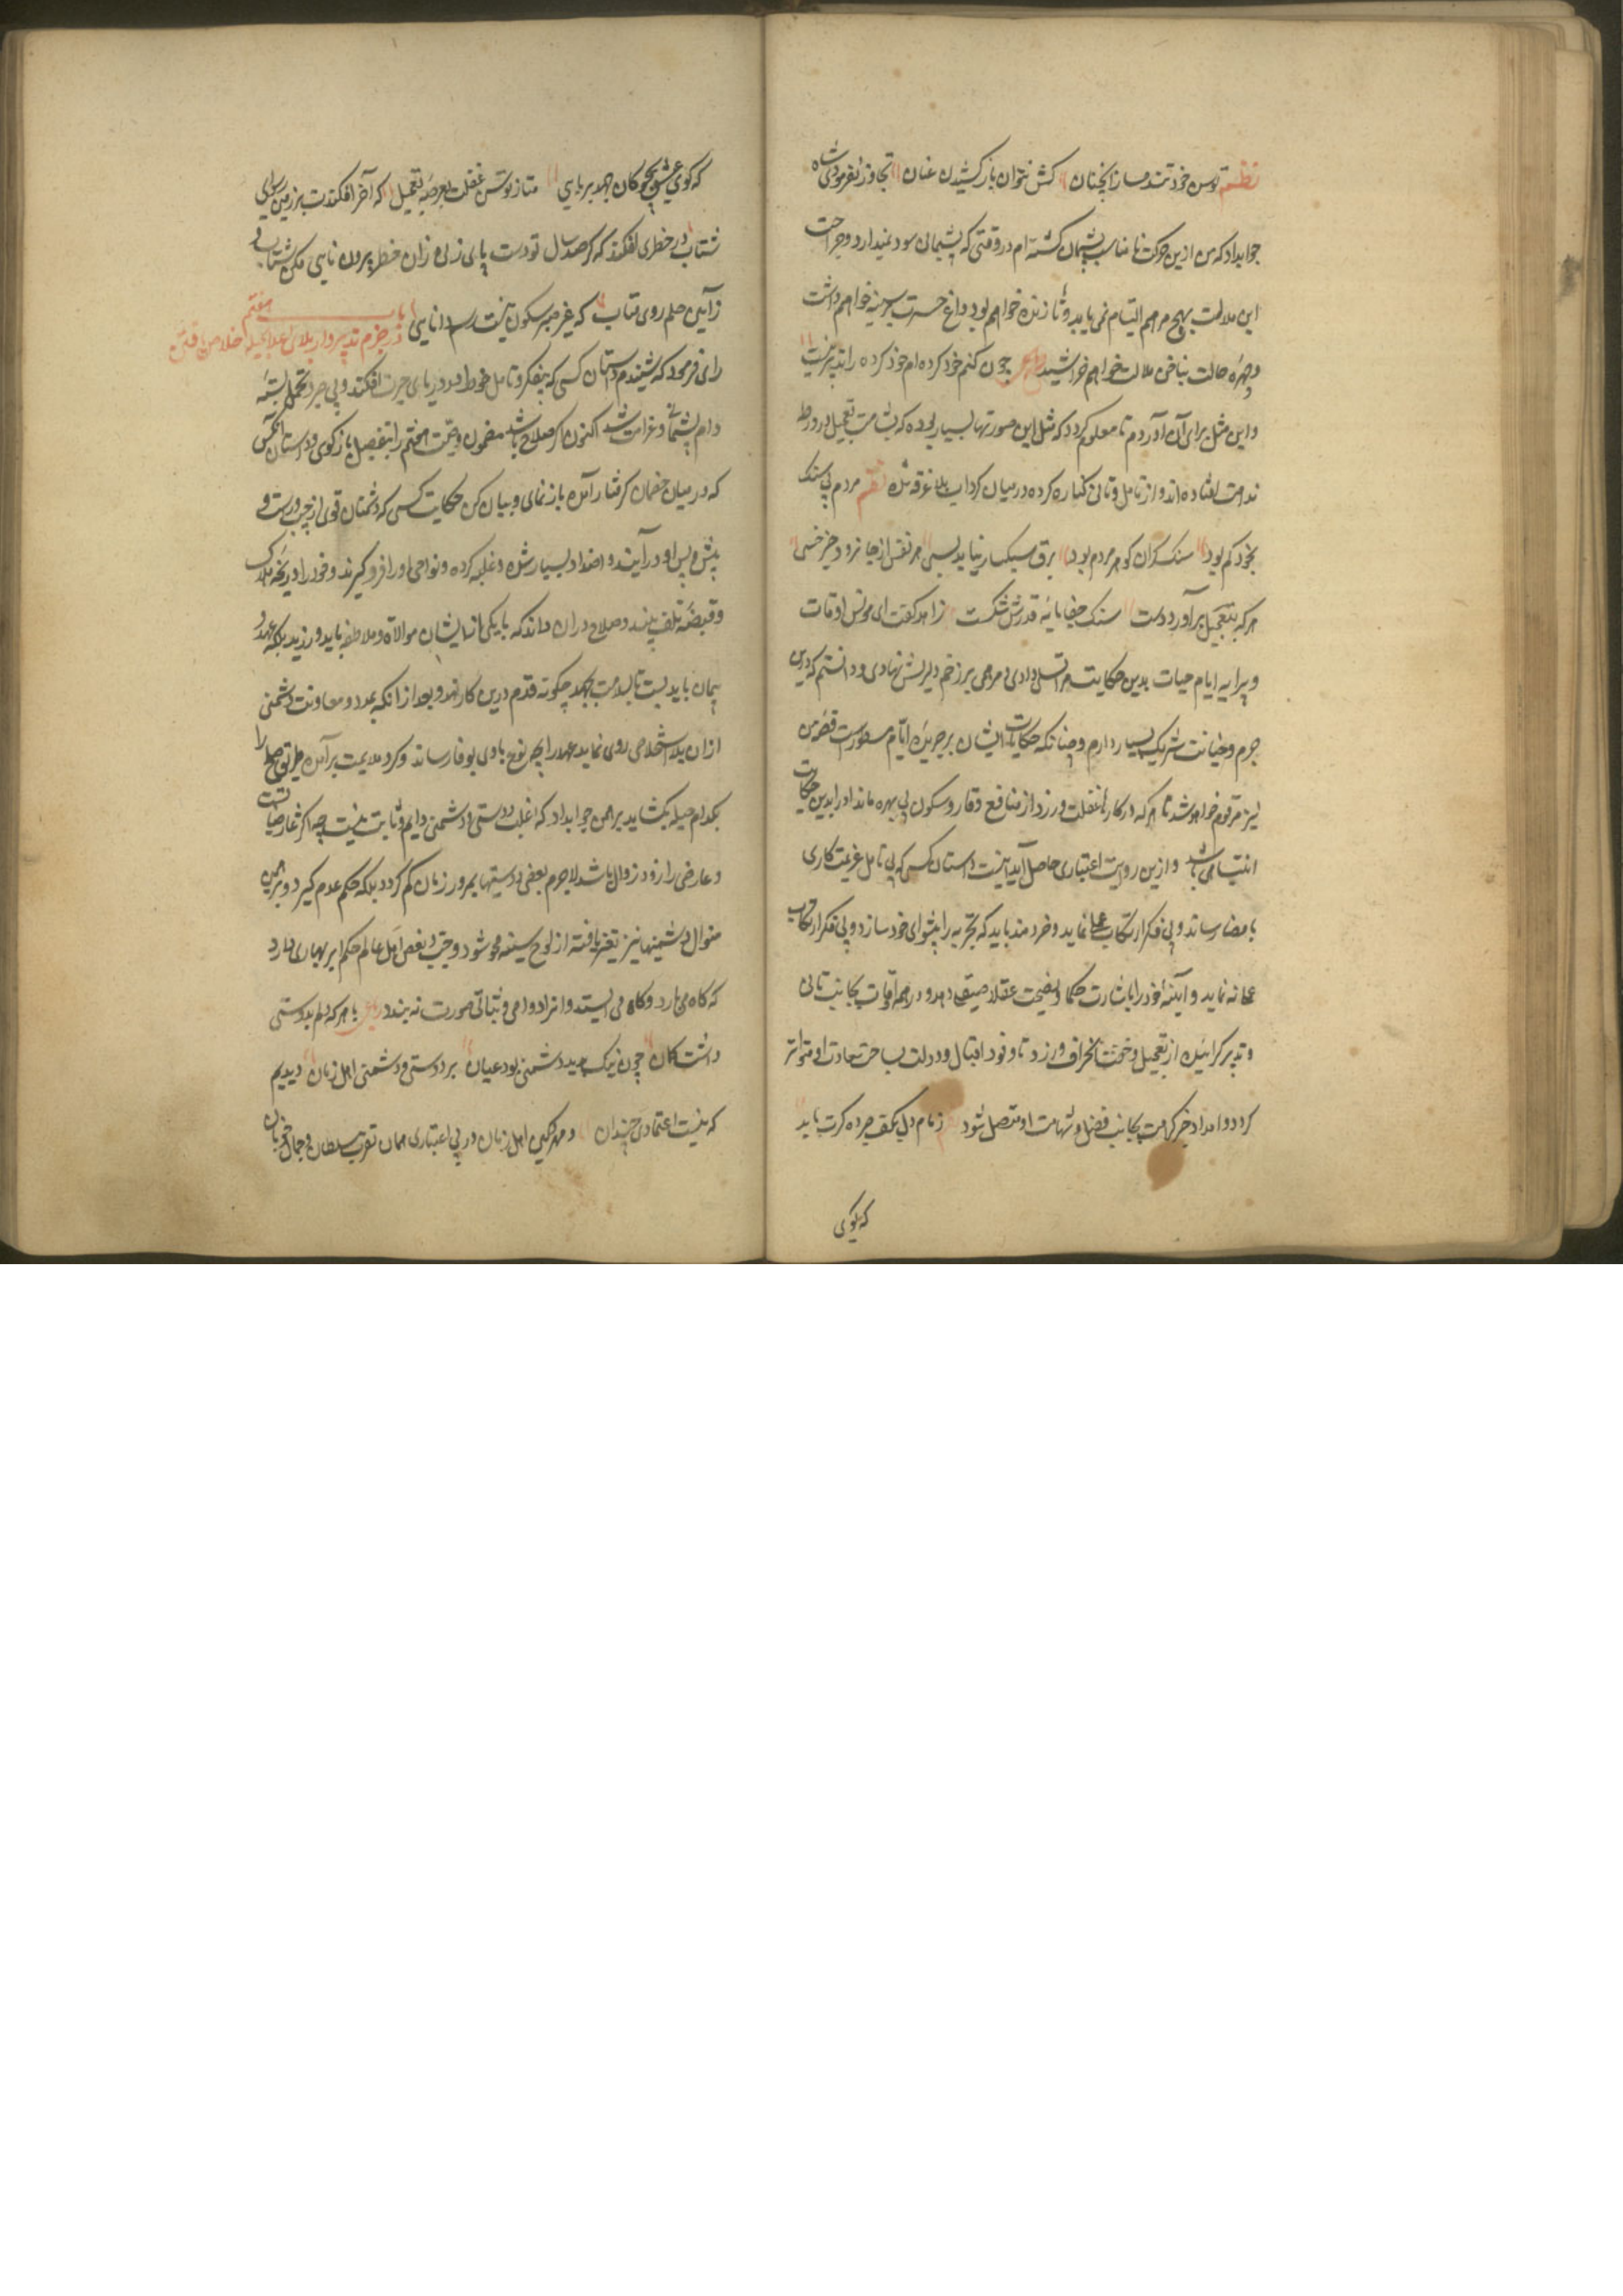 نظم توسن خود تند مساز آنچنان کش نتوان باز کشیدن عنان تجاوز نفرمودی شاه
جواب داد که من ازین حرکت نامناسب پشیمان کشته‌ام در وقتی که پشیمانی سود نمیدارد و جراحت
این ملالت بهیچ مرهم التیام نمی یابد و تا زنده خواهم بود داغ حسرت بر سینه خواهم داشت
و چهره حالت بناخن ملالت خواهم خراشید مصرع چون کنم خود کرده ام خود کرده را تدبیر نیست
و این مثل برای آن آوردم تا معلوم کردد که مثل این صورتها بسیار بوده که بشامت تعجیل در ورطه
ندامت افتاده اند و از تامل و تانی کناره کرده در میان کرداب بلا غرقه شده نظم مردم بی سنک
بخود کم بود سنک کران کوهر مردم بود برق سبکسار نیاید بسی هر نفس از جا نرود جز خسی
هر که بتعجیل برآورد دست سنک جفا پایه قدرش شکست زاهد کفت ای مونس اوقات
و پیرایه ایام حیات بدین حکایت مرا تسلی دادی و مرهمی بر زخم دل ریش نهادی و دانستم که درین
جرم و خیانت شریک بسیار دارم و چنانکه حکایت ایشان بر جریده ایام مسطورست قصه من
نیز مرقوم خواهد شد تا هر که در کارها غفلت ورزد از منافع وقار و سکون بی بهره ماند او را بدین حکایت
انتباهی باشد و ازین روایت اعتباری حاصل آید اینست داستان کسی که بی تامل عزیمت کاری
بامضا رساند و بی فکر ارتکاب عملی نماید و خردمند باید که تجربه را پیشوای خود سازد و بی فکر ارتکاب
عملها نه نماید و آینه خود را باشارت حکما و نصیحت عقلا صیقل دهد و در همه اوقات بجانب تانی
و تدبیر کراییده از تعجیل و خفت انحراف ورزد تا وفود اقبال و دولت بساحت سعادت او متواتر
کردد و امداد خیر و کرامت بجانب فضل و شهامت او متصل شود نظم زمام دل بکف صبر ده کرت باید
که کوی
که کوی عیش بچوکان جهد بربایی متاز توسن غفلت بعرصه تعجیل که آخر افکندت بر زمین رسوایی
شتاب در خطری افکند که کر صد سال تو دست و پای زنی زان خطر برون نایی مکن شتاب و
ز آیین حلم روی متاب که غیر صبر و سکون نیست رسم دانایی باب هفتم
در حزم و تدبیر و از بلای اعدا بحیله خلاص یافتن
رای فرمود که شنیدم داستان کسی که بی فکر و تامل خود را در دریای حیرت افکند و بی صبر و تحمل بسته
دام پشیمانی و غرامت شد اکنون اگر صلاح باشد مضمون وصیت هفتم را بتفصیل باز کوی و داستان آنکس
که در میان خصمان کرفتار آمده باز نمای و بیان کن حکایت کسی که دشمنان قوی از چپ و راست و
پیش و پس او درآیند و اضداد بسیار شده و غلبه کرده و نواحی او را فرو کیرند و خود را در پنجه هلاک
و قبضه تلف بیند و صلاح در آن داند که با یکی از ایشان موالاة و ملاطفه باید ورزید بلکه عهد و
پیمان باید بست تا بسلامت بجهد چکونه قدم درین کار نهد و بعد از آنکه بمدد و معاونت دشمنی
از آن بلا استخلاصی روی نماید عهد را بچه نوع با وی بوفا رساند و کرد ملایمت برآمده طریق صلح را
بکدام حیله بکشاید برهمن جواب داد که اغلب دوستی و دشمنی دایم و ثابت نیست چه اکثر عارضیات
و عارضی را زود زوال باشد لاجرم بعضی دوستیها بمرور زمان کم کردد بلکه حکم عدم کیرد و بر همین
منوال دشمنیها نیز تغیر یافته از لوح سینه محو شود و حب و بغض اهل عالم حکم ابر بهاری دارد
که کاه می بارد و کاه می ایستد و آنرا دوامی و ثباتی صورت نه بندد رباعی با هر که دلم بدوستی
داشت کمان چون نیک بدید دشمنی بود عیان بر دوستی و دشمنی اهل زمان دیدیم
که نیست اعتمادی چندان و مهر و کین اهل زمان در بی اعتباری همان تقرب سلطان و جمال خوبان